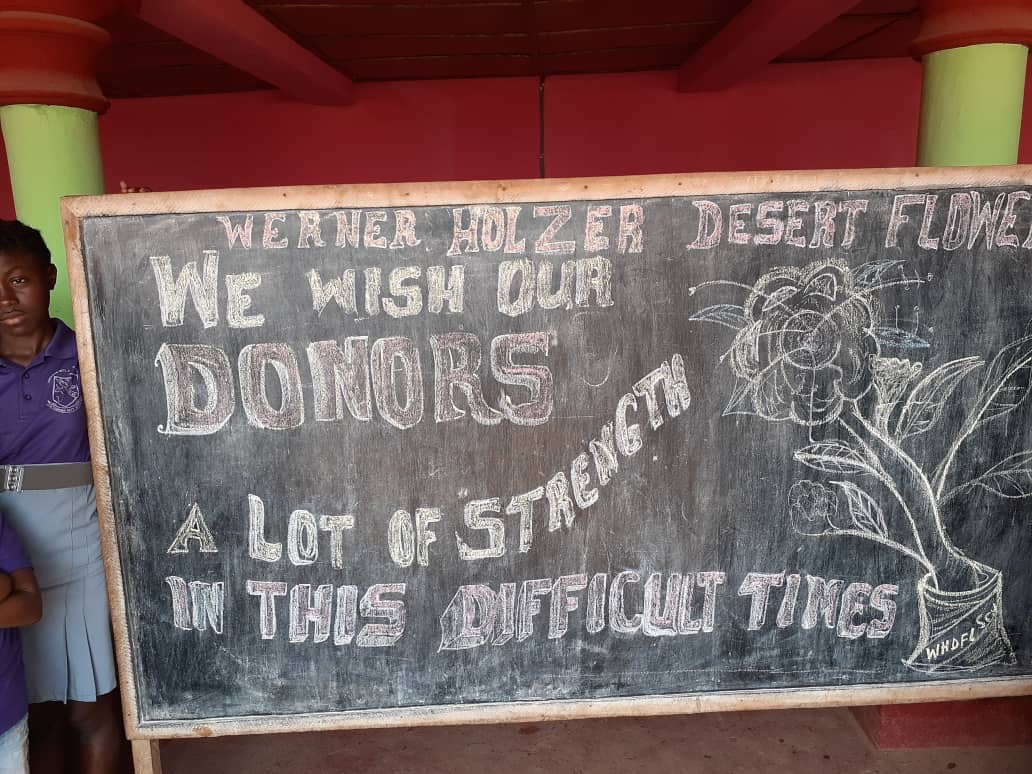 WERNER HOLZER DESERT FLOWE
WE WISH OUR
DONORS
A LOT OF STRENGTH
IN THIS DIFFICULT TIMES